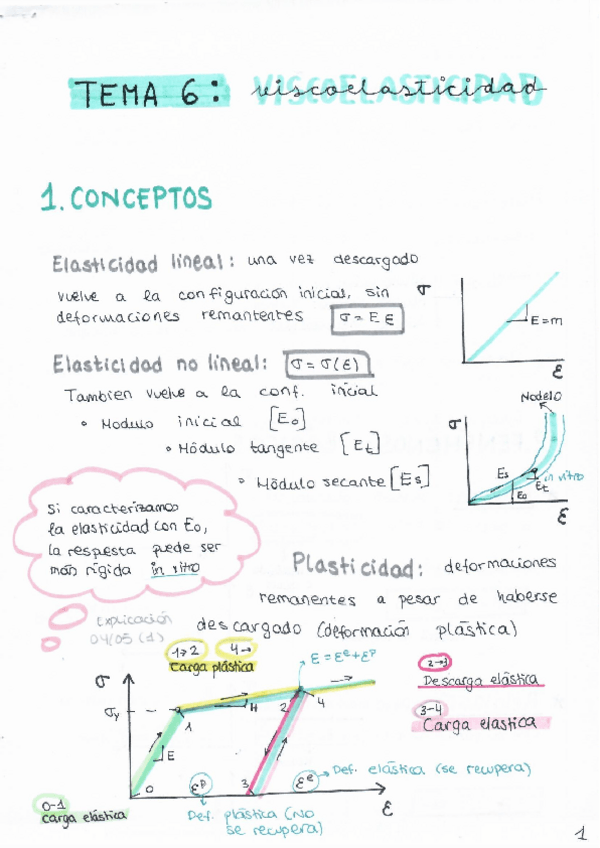 TEMA 6: viscoelasticidad
VISCOELASTICIDAD
1. CONCEPTOS
Elasticidad lineal: una vez descargado
vuelve a la configuración inicial, sin
deformaciones remantentes σ = E ε
σ
E=m
ε
Elasticidad no lineal: σ = σ(ε)
Tambien vuelve a la conf. inicial
• Modulo inicial [E₀]
• Módulo tangente [Et]
• Módulo secante [Es]
Modelo
σ
Es
in vitro
Et
E₀
ε
Si caracterizamos
la elasticidad con E₀,
la respuesta puede ser
más rígida in vitro
Explicación
04/05 (d)
Plasticidad: deformaciones
remanentes a pesar de haberse
descargado (deformación plástica)
1→2 4→
Carga plástica
ε = εᵉ + εᵖ
2→3
Descarga elástica
3-4
Carga elastica
σ
σy
H
1
2
4
E
0
εᵖ
3
εᵉ
Def. elástica (se recupera)
ε
0-1
Carga elástica
Def. plástica (NO
se recupera)
1